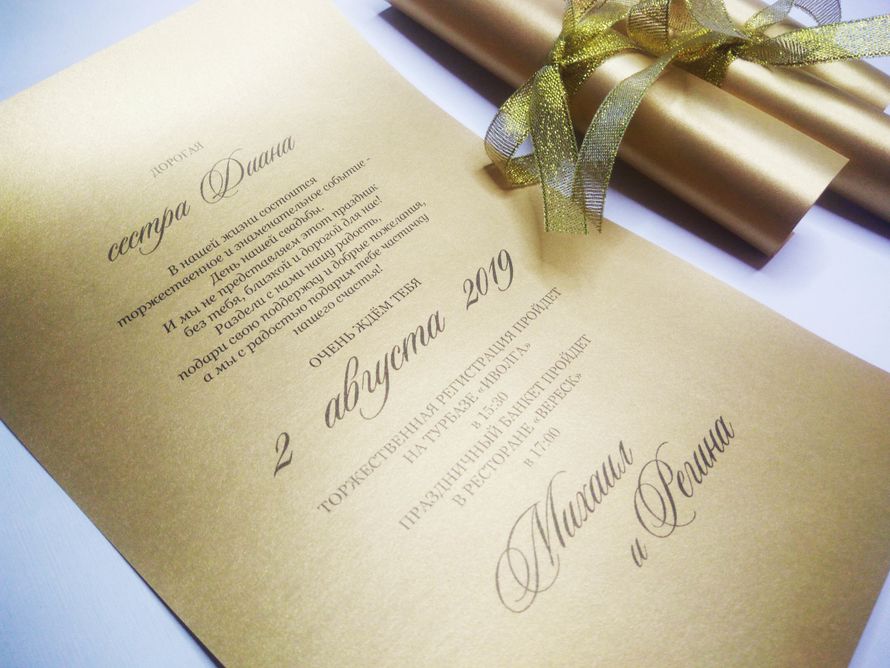 ДОРОГАЯ
сестра Диана
В нашей жизни состоится
торжественное и знаменательное событие -
День нашей свадьбы.
И мы не представляем этот праздник
без тебя, близкой и дорогой для нас!
Раздели с нами нашу радость,
подари свою поддержку и добрые пожелания,
а мы с радостью подарим тебе частичку
нашего счастья!
ОЧЕНЬ ЖДЁМ ТЕБЯ
2 августа 2019
ТОРЖЕСТВЕННАЯ РЕГИСТРАЦИЯ ПРОЙДЕТ
НА ТУРБАЗЕ «ИВОЛГА»
в 15:30
ПРАЗДНИЧНЫЙ БАНКЕТ ПРОЙДЕТ
В РЕСТОРАНЕ «ВЕРЕСК»
в 17:00
Михаил
и Регина